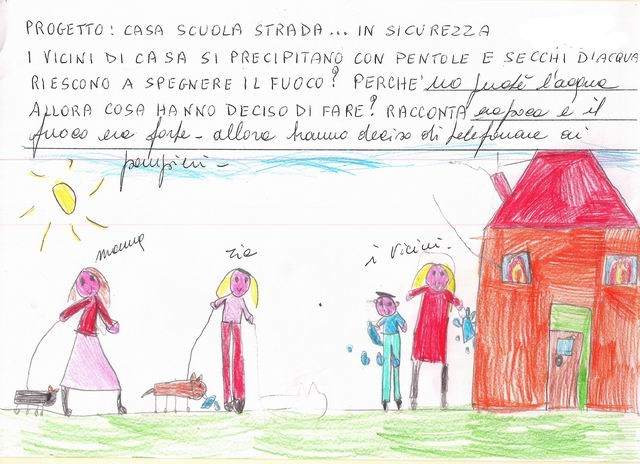 PROGETTO: CASA SCUOLA STRADA... IN SICUREZZA
I VICINI DI CASA SI PRECIPITANO CON PENTOLE E SECCHI D'ACQUA
RIESCONO A SPEGNERE IL FUOCO? PERCHE' no perchè l'acqua
ALLORA COSA HANNO DECISO DI FARE? RACCONTA era poca e il
fuoco era forte - allora hanno deciso di telefonare ai
pompieri -
mamma
zia
i vicini -